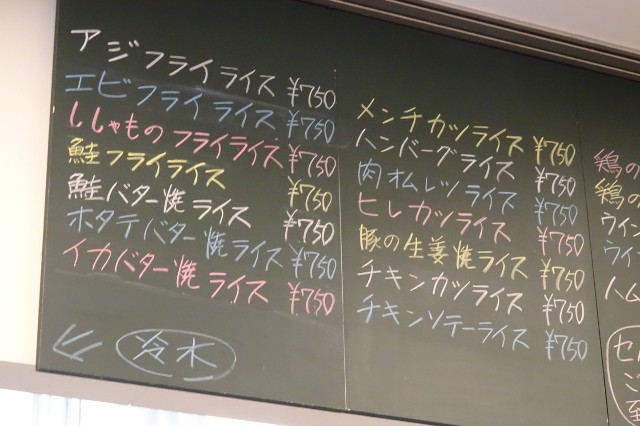 アジフライライス ¥750
エビフライライス ¥750
ししゃものフライライス ¥750
鮭フライライス ¥750
鮭バター焼ライス ¥750
ホタテバター焼ライス ¥750
イカバター焼ライス ¥750
冷木
メンチカツライス ¥750
ハンバーグライス ¥750
肉オムレツライス ¥750
ヒレカツライス ¥750
豚の生姜焼ライス ¥750
チキンカツライス ¥750
チキンソテーライス ¥750
鶏の
鶏の
ウイン
ライ
ハム
セル
ご
至